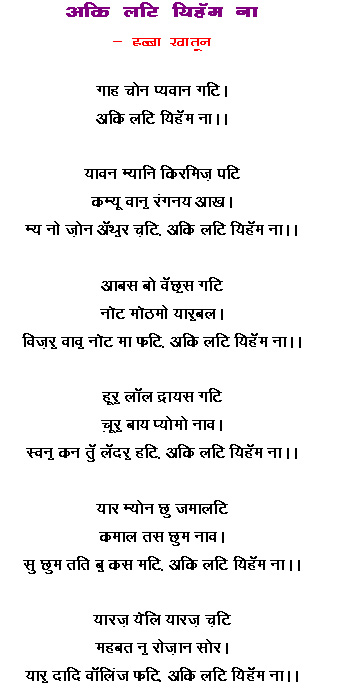 अकि लटि यिहॅम ना
- हब्बा खातून
गाह चोन प्यवान गटि।
अकि लटि यिहॅम ना।।
यावन म्यानि किरमिज़ पटि
कम्यू वानु रंगनय आख।
म्य नो ज़ोन ॲथुर च़टि, अकि लटि यिहॅम ना।।
आबस बो वॅछुस गटि
नोट मोठमो यारुबल।
विज़रु वावु नोट मा फटि, अकि लटि यिहॅम ना।।
हूरु लॉल द्रायस गटि
च़ूरु बाय प्योमो नाव।
स्वनु कन तुॅ लॅदरु हटि, अकि लटि यिहॅम ना।।
यार म्योन छु जमालटि
कमाल तस छुम नाव।
सु छुम तति बु कस मटि, अकि लटि यिहॅम ना।।
यारज़ येलि यारज़ च़टि
महबत नु रोज़ान सोर।
यारु दादि वॉलिंज फटि, अकि लटि यिहॅम ना।।